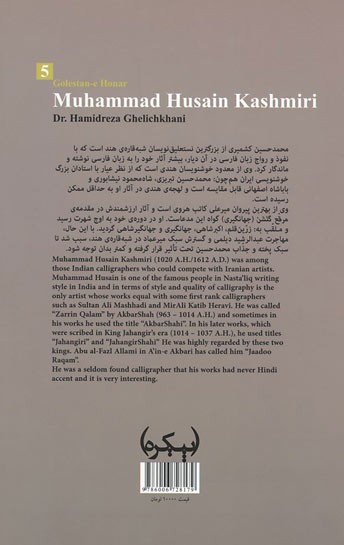 5
Golestan-e Honar
Muhammad Husain Kashmiri
Dr. Hamidreza Ghelichkhani
محمدحسین کشمیری از بزرگترین نستعلیق‌نویسان شبه‌قاره‌ی هند است که با
نفوذ و رواج زبان فارسی در آن دیار، بیشتر آثار خود را به زبان فارسی نوشته و
ماندگار کرد. وی از معدود خوشنویسان هندی است که از نظر عیار با استادان بزرگ
خوشنویسی ایران هم‌چون: محمدحسین تبریزی، شاه‌محمود نیشابوری و
باباشاه اصفهانی قابل مقایسه است و لهجه‌ی هندی در آثار او به حداقل ممکن
رسیده است.
وی از بهترین پیروان میرعلی کاتب هروی است و آثار ارزشمندش در مقدمه‌ی
مرقع گلشن (جهانگیری) گواه این مدعاست. او در دوره‌ی خود به اوج شهرت رسید
و ملقب به: زرین‌قلم، اکبرشاهی، جهانگیری و جهانگیرشاهی گردید. با این حال،
مهاجرت عبدالرشید دیلمی و گسترش سبک میرعماد در شبه‌قاره‌ی هند، سبب شد تا
سبک پخته و جذاب محمدحسین تحت تأثیر قرار گرفته و کمتر بدان توجه شود.
Muhammad Husain Kashmiri (1020 A.H./1612 A.D.) was among
those Indian calligraphers who could compete with Iranian artists.
Muhammad Husain is one of the famous people in Nasta'liq writing
style in India and in terms of style and quality of calligraphy is the
only artist whose works equal with some first rank calligraphers
such as Sultan Ali Mashhadi and MirAli Katib Heravi. He was called
"Zarrin Qalam" by AkbarShah (963 – 1014 A.H.) and sometimes in
his works he used the title "AkbarShahi". In his later works, which
were scribed in King Jahangir's era (1014 – 1037 A.H.), he used titles
"Jahangiri" and "JahangirShahi" He was highly regarded by these two
kings. Abu al-Fazl Allami in A'in-e Akbari has called him "Jaadoo
Raqam".
He was a seldom found calligrapher that his works had never Hindi
accent and it is very interesting.
(پیکره)
9786006728179
قیمت ۱۰۰۰۰ تومان